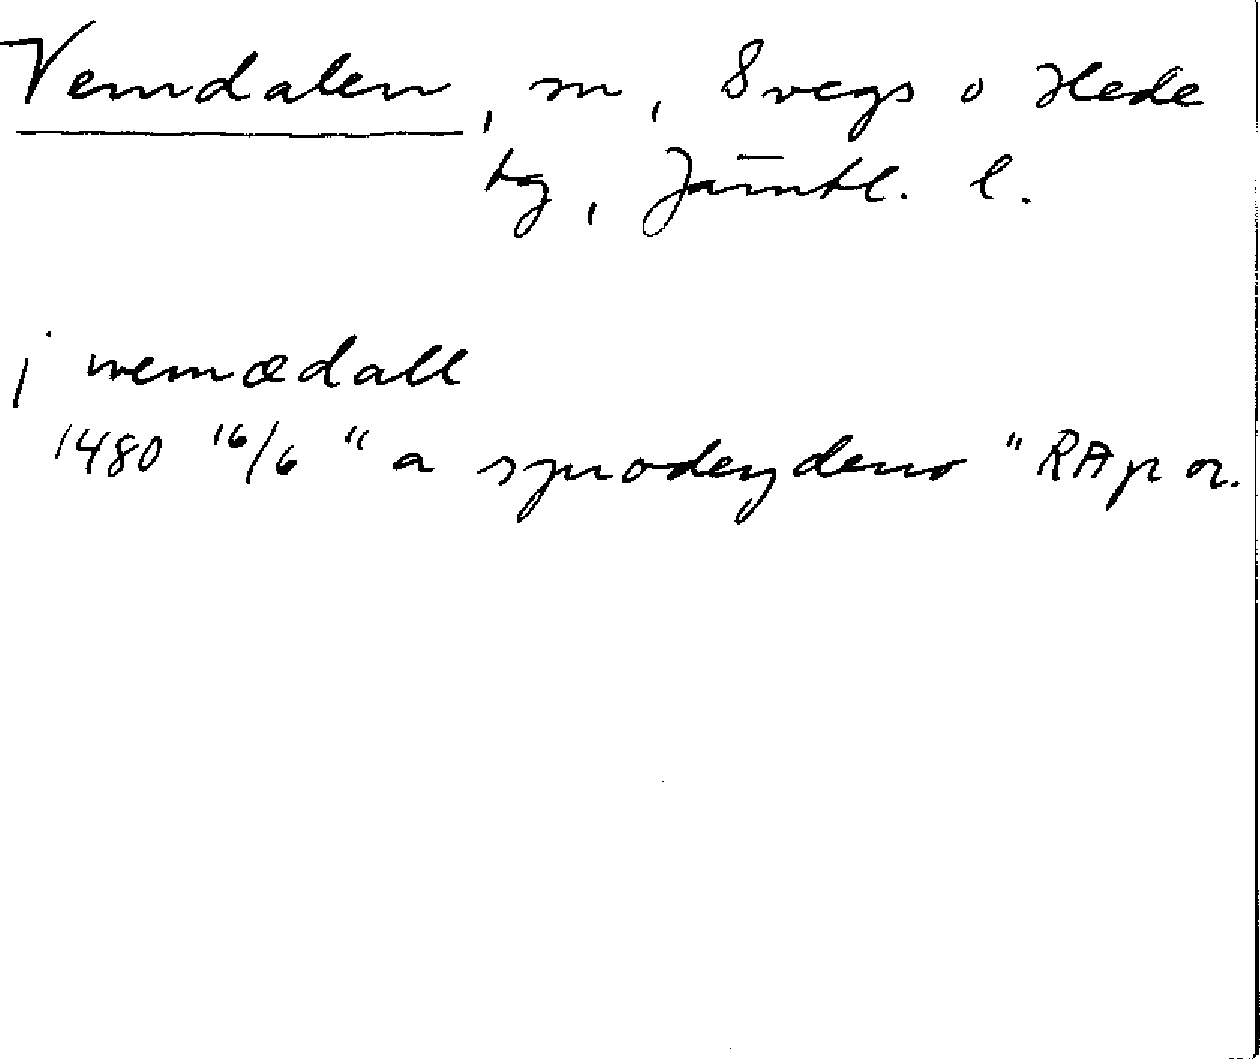 Vemdalen, sn, Svegs o Hede
tg, Jämtl. l.
j wemædall
1480 16/6 "a synodeydeno" RAp or.